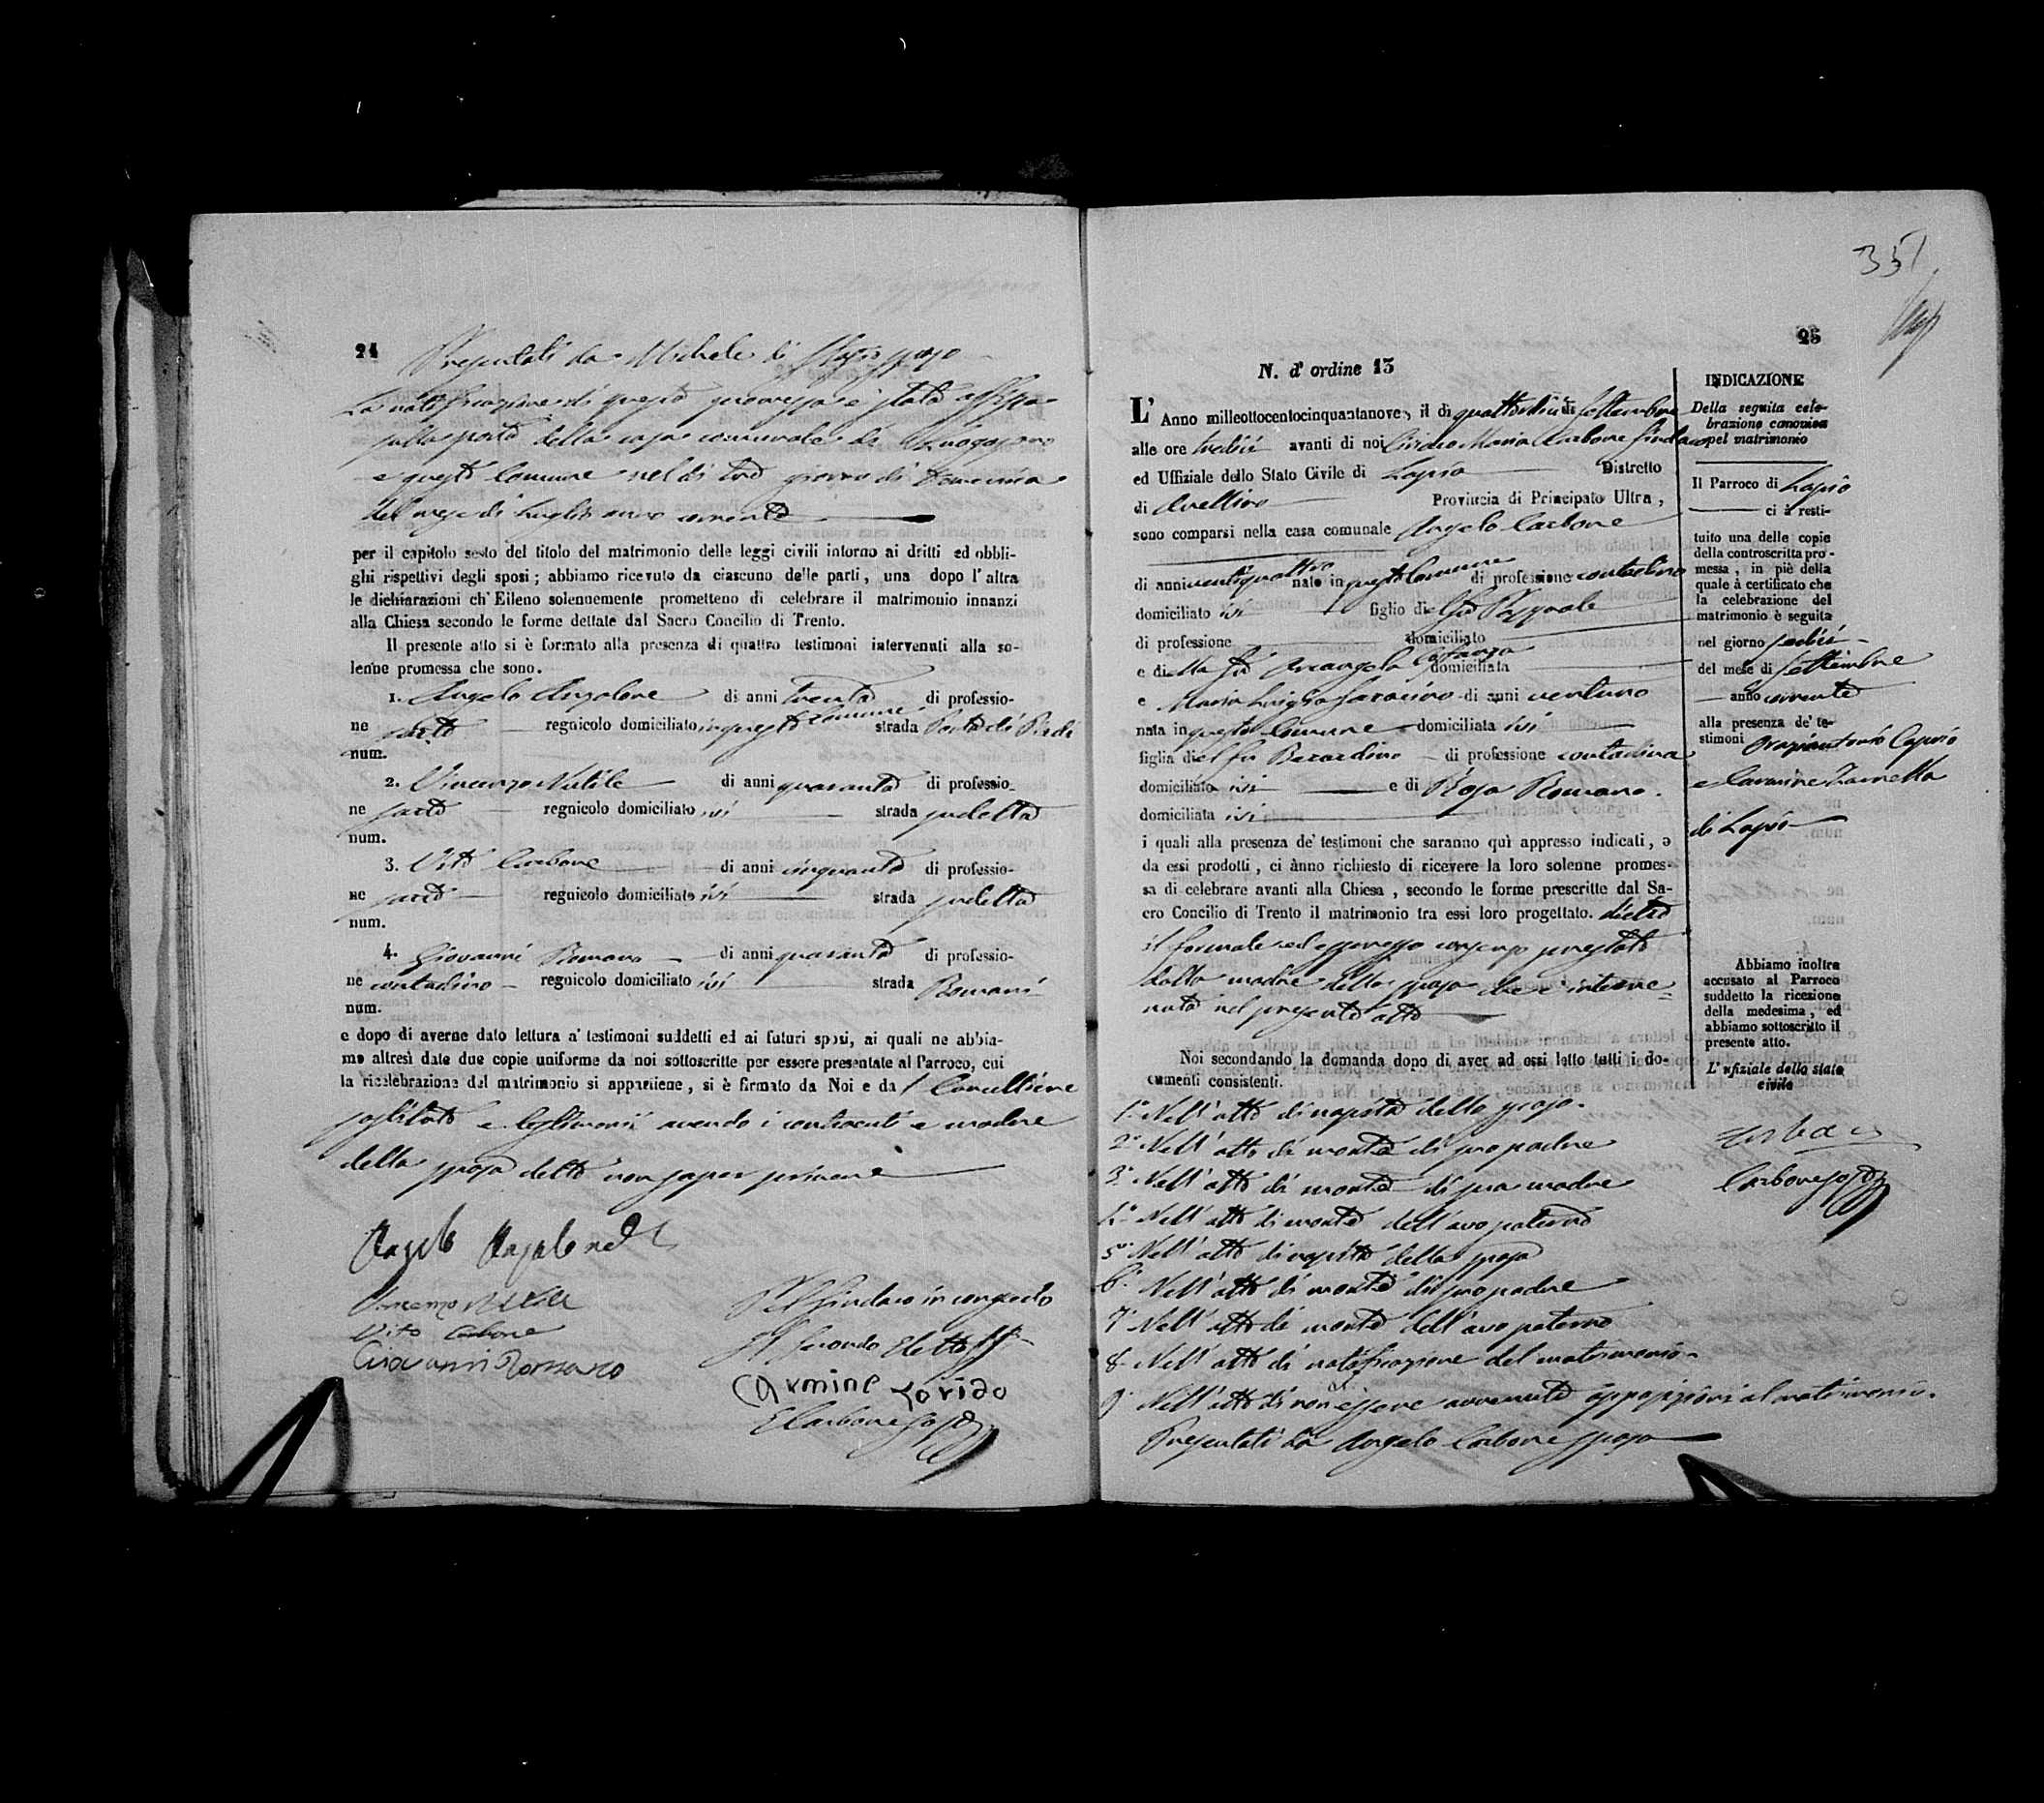 24
Presentati da Michele di Biasi sposo
La notificazione di questa promessa è stata affissa
sulla porta della casa comunale di Luogosano
e questo Comune nel dì tre giorno di Domenica
del mese di Luglio anno corrente
per il capitolo sesto del titolo del matrimonio delle leggi civili intorno ai dritti ed obbli-
ghi rispettivi degli sposi; abbiamo ricevuto da ciascuno delle parti, una dopo l'altra
le dichiarazioni ch'Eileno solennemente promettono di celebrare il matrimonio innanzi
alla Chiesa secondo le forme dettate dal Sacro Concilio di Trento.
Il presente atto si è formato alla presenza di quattro testimoni intervenuti alla so-
lenne promessa che sono.
1. Angelo Anzalone di anni trenta di professio-
ne sarto regnicolo domiciliato in questo Comune strada Porta di Piedi
num.
2. Vincenzo Nutile di anni quaranta di professio-
ne sarto regnicolo domiciliato ivi strada sudetta
num.
3. Vito Carbone di anni cinquanta di professio-
ne sarto regnicolo domiciliato ivi strada sudetta
num.
4. Giovanni Romano di anni quaranta di professio-
ne contadino regnicolo domiciliato ivi strada Romani
num.
e dopo di averne dato lettura a' testimoni suddetti ed ai futuri sposi, ai quali ne abbia-
mo altresì date due copie uniforme da noi sottoscritte per essere presentate al Parroco, cui
la ricelebrazione del matrimonio si appartiene, si è firmato da Noi e da l Cancelliere
sostituto e testimonii avendo i contraenti e madre
della sposa detto non saper scrivere
Vincenzo Nutile
Vito Carbone
Giovanni Romano
Pel Sindaco in congedo
Il Secondo Eletto ff
Carmine
Carbone Sosto
351
25
N. d' ordine 13
L' Anno milleottocentocinquantanove, il di quattordici di Settembre
alle ore tredici avanti di noi Ciriaco Maria Carbone Sindaco
ed Uffiziale dello Stato Civile di Lapio Distretto
di Avellino Provincia di Principato Ultra,
sono comparsi nella casa comunale Angelo Carbone
di anni ventiquattro nato in questo Comune di professione contadino
domiciliato ivi figlio di l fu Pasquale
di professione domiciliato
e di lla fu Arcangela Costanza domiciliata
e Maria Luigia Saracino di anni ventuno
nata in questo Comune domiciliata ivi
figlia di el fu Berardino di professione contadina
domiciliata ivi e di Rosa Romano.
domiciliata ivi
i quali alla presenza de' testimoni che saranno quì appresso indicati, e
da essi prodotti, ci ànno richiesto di ricevere la loro solenne promes-
sa di celebrare avanti alla Chiesa, secondo le forme prescritte dal Sa-
cro Concilio di Trento il matrimonio tra essi loro progettato. dietro
il formale ed espresso consenso prestato
dalla madre della sposa che è interve=
nuta nel presente atto
Noi secondando la domanda dopo di aver ad essi letto tutti i do-
cumenti consistenti.
1º Nell'atto di nascita dello sposo.
2º Nell'atto di morte di suo padre
3º Nell'atto di morte di sua madre
4º Nell'atto di morte dell'avo paterno
5º Nell'atto di nascita della sposa
6º Nell'atto di morte di suo padre
7º Nell'atto di morte dell'avo paterno
8º Nell'atto di notificazione del matrimonio
9º Nell'atto di non essere avvenuta opposizioni al matrimonio.
Presentati da Angelo Carbone sposo
INDICAZIONE
Della seguita cele-
brazione canonica
pel matrimonio
Il Parroco di Lapio
ci à resti-
tuito una delle copie
della controscritta pro-
messa, in piè della
quale à certificato che
la celebrazione del
matrimonio è seguita
nel giorno sedici
del mese di Settembre
anno corrente
alla presenza de' te-
stimoni Oraziantonio Caprio
e Carmine
di Lapio
Abbiamo inoltre
accusato al Parroco
suddetto la ricezione
della medesima, ed
abbiamo sottoscritto il
presente atto.
L'ufiziale dello stato
civile
Carbone Sosto